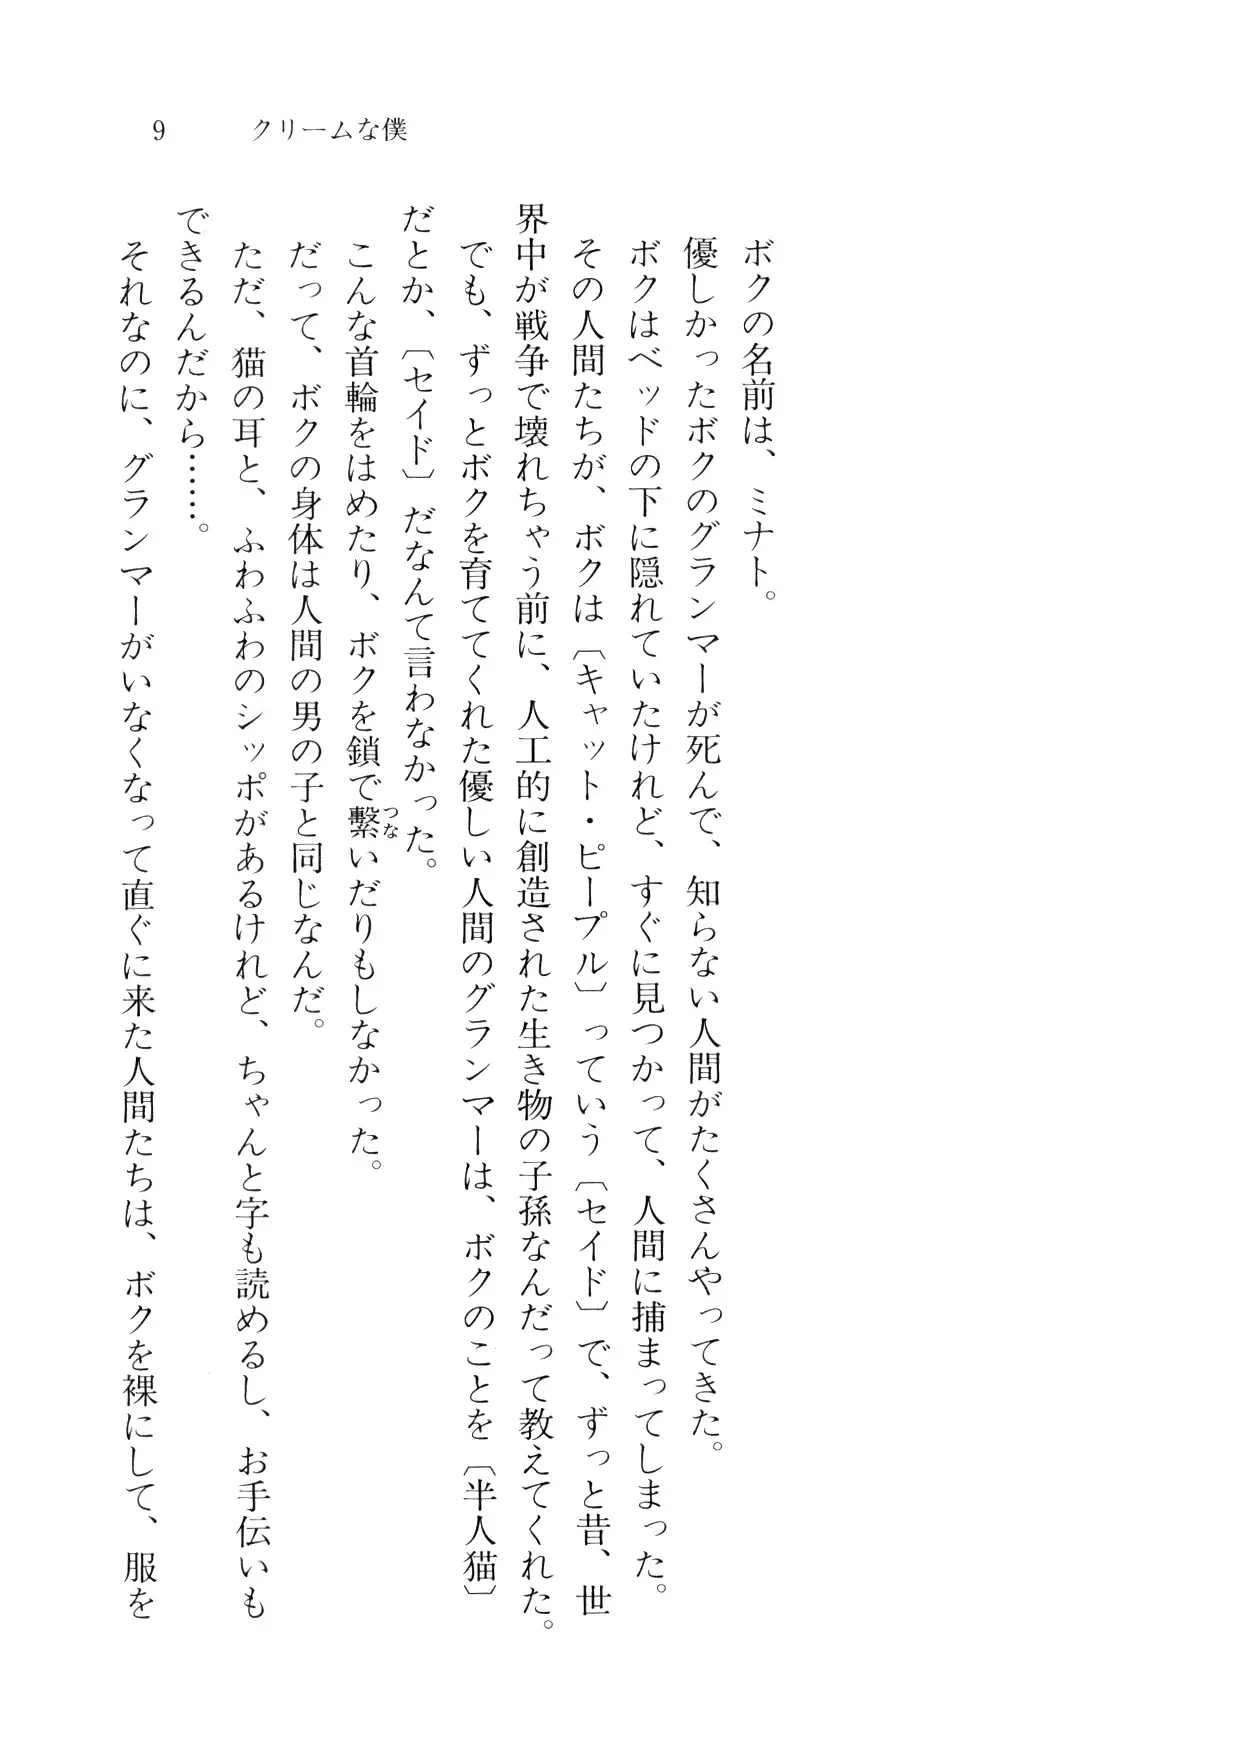 9　クリームな僕
ボクの名前は、ミナト。
優しかったボクのグランマーが死んで、知らない人間がたくさんやってきた。
ボクはベッドの下に隠れていたけれど、すぐに見つかって、人間に捕まってしまった。
その人間たちが、ボクは〔キャット・ピープル〕っていう〔セイド〕で、ずっと昔、世
界中が戦争で壊れちゃう前に、人工的に創造された生き物の子孫なんだって教えてくれた。
でも、ずっとボクを育ててくれた優しい人間のグランマーは、ボクのことを〔半人猫〕
だとか、〔セイド〕だなんて言わなかった。
こんな首輪をはめたり、ボクを鎖で繫いだりもしなかった。
つな
だって、ボクの身体は人間の男の子と同じなんだ。
ただ、猫の耳と、ふわふわのシッポがあるけれど、ちゃんと字も読めるし、お手伝いも
できるんだから……。
それなのに、グランマーがいなくなって直ぐに来た人間たちは、ボクを裸にして、服を